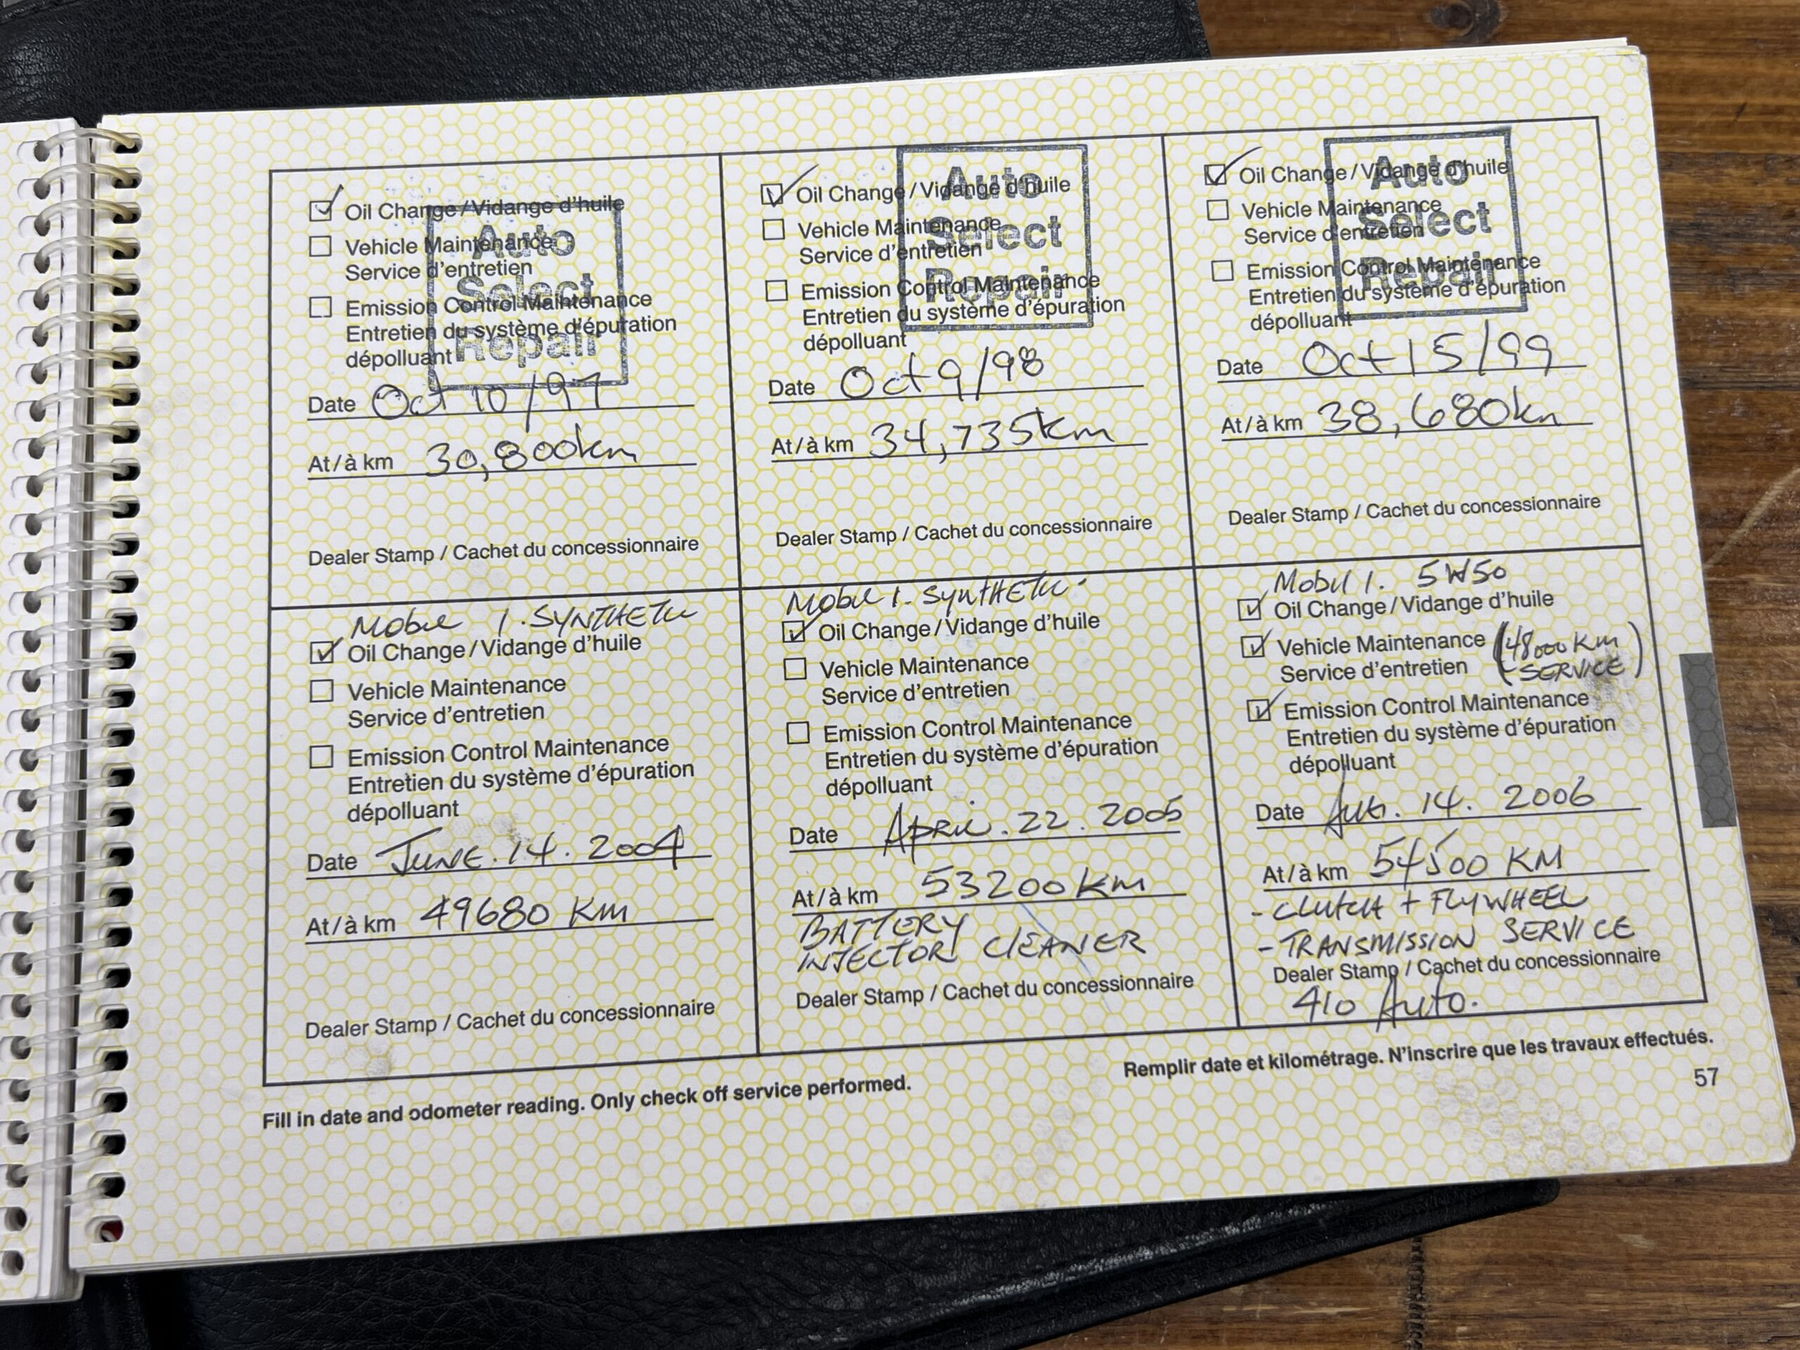 Oil Change / Vidange d'huile
Vehicle Maintenance
Service d'entretien
Emission Control Maintenance
Entretien du système d'épuration
dépolluant
Auto
Select
Repair
Date Oct 10/97
At / à km 30,800km
Dealer Stamp / Cachet du concessionnaire
Oil Change / Vidange d'huile
Vehicle Maintenance
Service d'entretien
Emission Control Maintenance
Entretien du système d'épuration
dépolluant
Auto
Select
Repair
Date Oct 9/98
At / à km 34,735km
Dealer Stamp / Cachet du concessionnaire
Oil Change / Vidange d'huile
Vehicle Maintenance
Service d'entretien
Emission Control Maintenance
Entretien du système d'épuration
dépolluant
Auto
Select
Repair
Date Oct 15/99
At / à km 38,680km
Dealer Stamp / Cachet du concessionnaire
Mobil 1. SYNTHETIC
Oil Change / Vidange d'huile
Vehicle Maintenance
Service d'entretien
Emission Control Maintenance
Entretien du système d'épuration
dépolluant
Date JUNE. 14. 2004
At / à km 49680 KM
Dealer Stamp / Cachet du concessionnaire
Mobil 1. SYNTHETIC
Oil Change / Vidange d'huile
Vehicle Maintenance
Service d'entretien
Emission Control Maintenance
Entretien du système d'épuration
dépolluant
Date APRIL. 22. 2005
At / à km 53200 KM
BATTERY
INJECTOR CLEANER
Dealer Stamp / Cachet du concessionnaire
Mobil 1. 5W50
Oil Change / Vidange d'huile
Vehicle Maintenance (48000 KM
Service d'entretien - SERVICE)
Emission Control Maintenance
Entretien du système d'épuration
dépolluant
Date Aug. 14. 2006
At / à km 54500 KM
- CLUTCH + FLYWHEEL
- TRANSMISSION SERVICE
Dealer Stamp / Cachet du concessionnaire
410 Auto.
Fill in date and odometer reading. Only check off service performed.
Remplir date et kilométrage. N'inscrire que les travaux effectués.
57